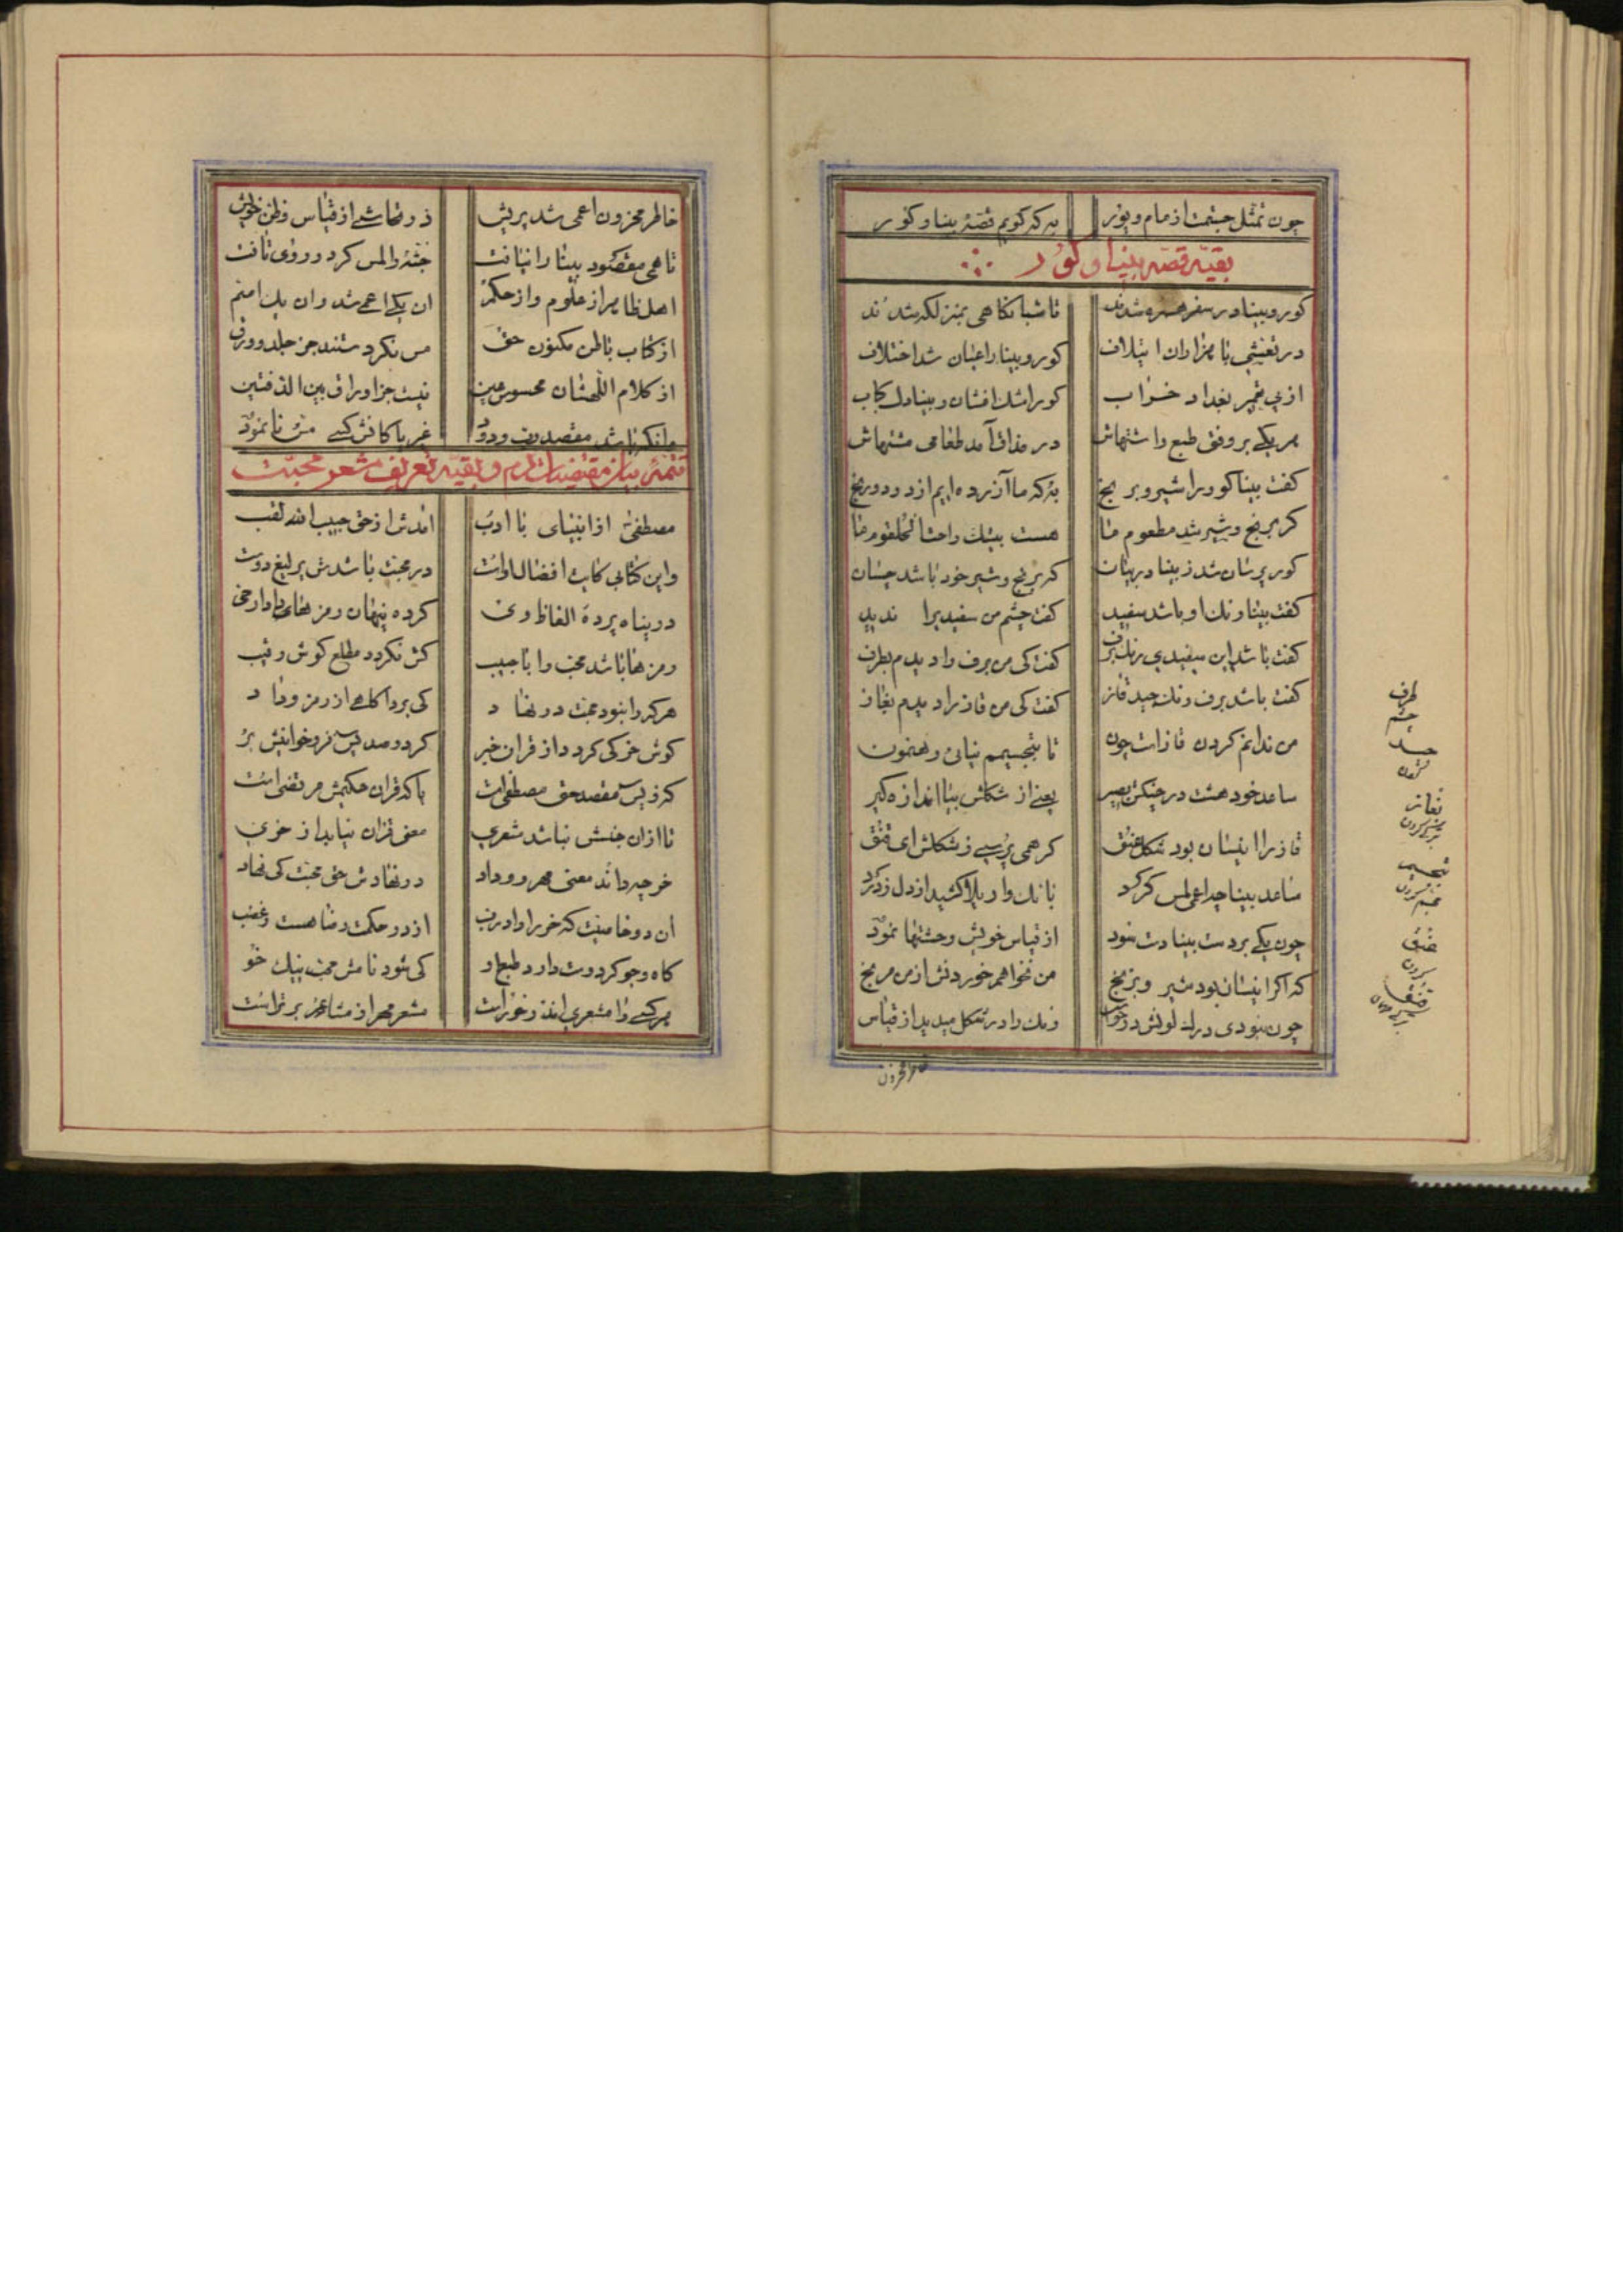 چون تمثل جستمت از مام و پور به که کویم قصهٔ بینا و کور
بقیه قصه بینا و کور
کور و بینا در سفر همره شدند تا شبانکاهی بمنزلکه شدند
در تعیشی با هزاران ایتلاف کور و بینا را عیان شد اختلاف
از پی تخمیر بغداد خراب کور اشک افشان و بینا دل کباب
هر یکی بر وفق طبع و اشتهاش در مذاق آمد طعامی مشتهاش
کفت بینا کور را شیر و برنج به که ما آزرده ایم از درد و رنج
کر برنج و شیر شد مطعوم ما هست بیشک راحت الحلقوم ما
کور پرسان شد ز بینا در بیان کر برنج و شیر خود باشد چسان
کفت بینا رنک او باشد سفید کفت چشم من سفیدیرا ندید
کفت باشد این سفیدی رنک برف کفت کی من برف را دیدم بطرف
کفت باشد برف رنک جید قاز کفت کی من قاز را دیدم بغاز
من ندانم کردن قاز است چون تا بتجسیمم نیائی رهنمون
ساعد خود هشت در چنکش بصیر یعنی از شکلش بیا اندازه کیر
قاز را اینسان بود شکل عنق کر همی پرسی ز شکلش ای قنق
ساعد بینا چو اعمی لمس کرد بانک واویلا کشید از دل ز درد
چون یکی بر دست بینا دست سود از قیاس خویش وحشتها نمود
که اکر اینسان بود شیر و برنج من نخواهم خوردنش از من مرنج
چون نبودی درک لونش در حواس رنک را در شکل میدید از قیاس
طرف
چشم
جید
کردن
تجسیم
عنق
کردن
قنق
خاطر محزون
خاطر محزون اعمی شد پریش در تحاشی از قیاس و ظن خویش
تا همی مقصود بینا را نیافت جثه را لمس کرد و روی تافت
اهل ظاهر از علوم و از حکم آن یکی اعمی شد و آن یک اصم
از کتاب باطن مکنون حق مس نکردستند جز جلد و ورق
از کلام اللهشان محسوس عین نیست جز اوراق بین الدفتین
تتمهٔ بیان مقتضیات اسم و بقیه تعریف مشعر محبت
مصطفی از انبیای با ادب آمدش از حق حبیب الله لقب
واین کتابی کایت افضال اوست در محبت باشدش یرلیغ دوست
در پناه پردهٔ الفاظ وی کرده پنهان رمزهای دادار حی
رمزها باشد محب را با حبیب کش نکردد مطلع کوش رقیب
هر که را نبود محبت در نهاد کی برد آکاهی از رمز وداد
کوش خر کی کردد از قرآن خبر کر دو صد یس فرو خوانیش بر
که ز یس مقصد حق مصطفی است یا که قرآن حکیمش مرتضی است
تا از آن جنسش نباشد مشعری معنی قرآن نیاید از خری
خر چه داند معنی مهر و وداد در نهادش حق محبت کی نهاد
آن دو خاصیت که خر را داد رب از در حکمت رضا هست و غضب
کاه و جو کر دوست دارد طبع او کی شود نامش محب نیک خو
هر کسی را مشعری اندر خور است مشعر مهر از مشاعر برتر است